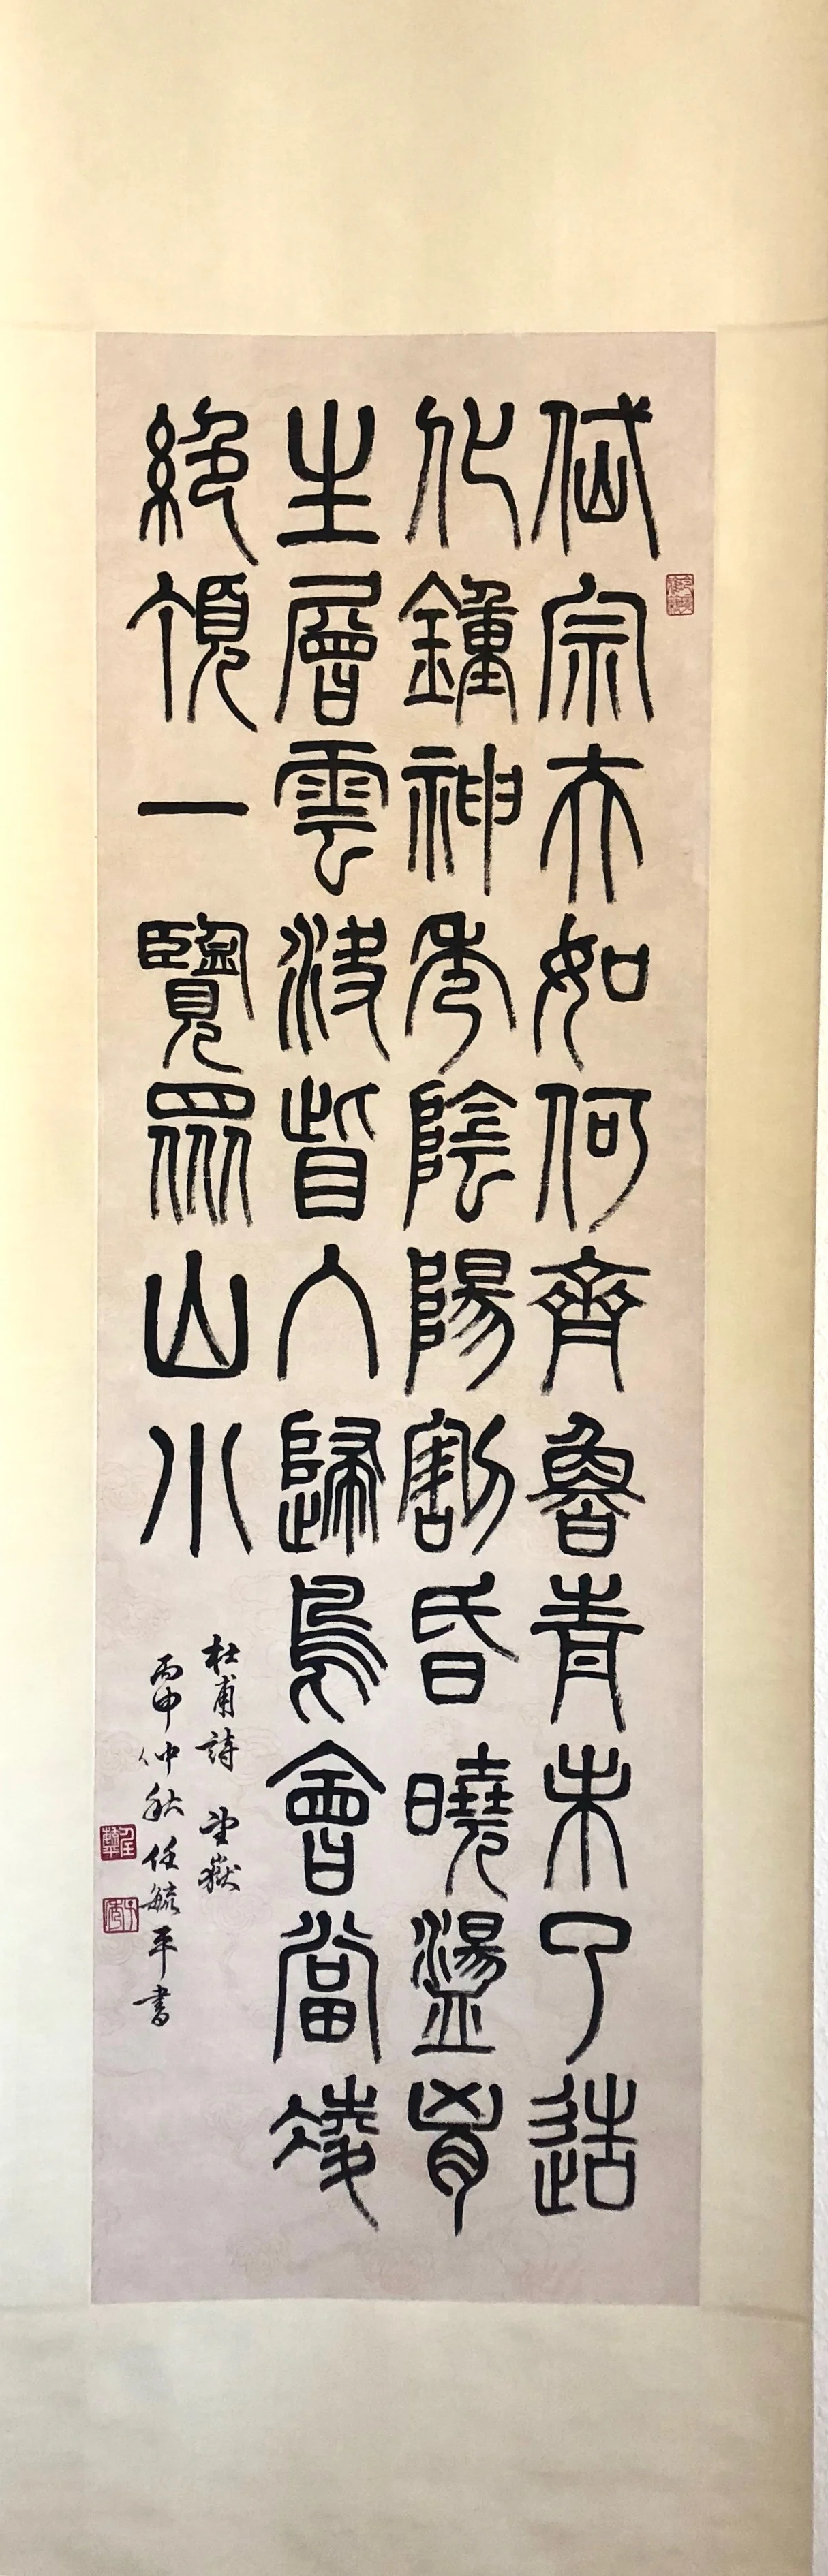 岱宗夫如何齊魯青未了造
化鐘神秀陰陽割昏曉盪胷
生層雲決眥入歸鳥會當凌
絕頂一覽眾山小
杜甫詩 望嶽
丙申仲秋任毓平書